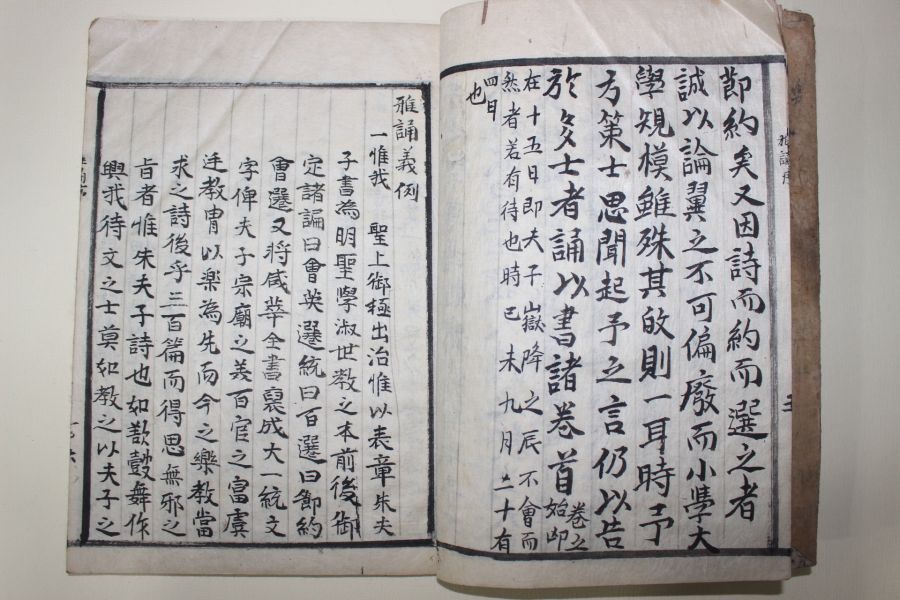 雅誦序
節約矣又因詩而約而選之者
誠以論翼之不可偏廢而小學大
學規模雖殊其致則一耳時予
方策士思聞起予之言仍以告
於多士者誦以書諸卷首卷之始印
在十五日即夫子嶽降之辰不會而
然者若有待也時己未九月二十有
四日也
雅誦義例
一惟我 聖上御極出治惟以表章朱夫
子書為明聖學淑世教之本前後御
定諸諞曰會英選統曰百選曰節約
會選又將咸萃全書裒成大一統文
字俾夫子宗廟之美百官之富虞
廷教冑以樂為先而今之樂教當
求之詩後乎三百篇而得思無邪之
旨者惟朱夫子詩也如欲鼓舞作
興我待文之士莫如教之以夫子之